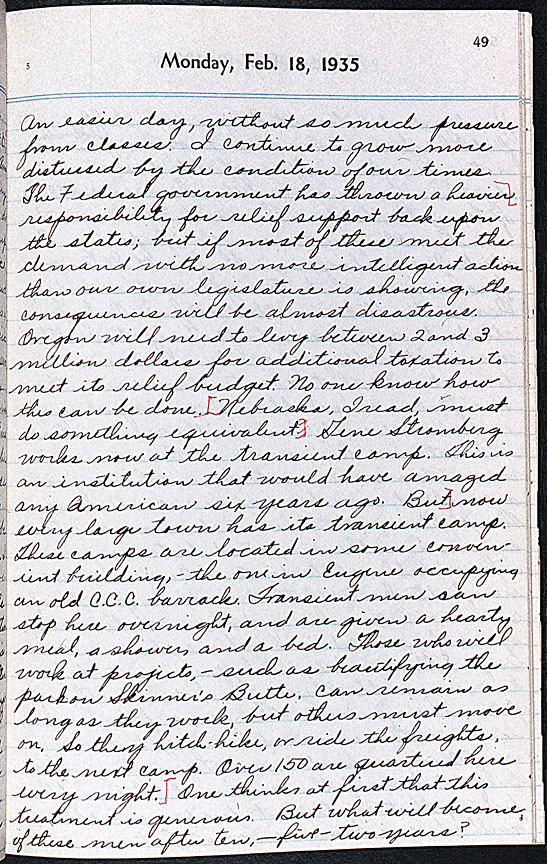 49
5
Monday, Feb. 18, 1935
An easier day, without so much pressure
from classes. I continue to grow more
distressed by the condition of our times.
The Federal government has thrown a heavier]
responsibility for relief support back upon
the states; but if most of these meet the
demand with no more intelligent action
than our own legislature is showing, the
consequences will be almost disastrous.
Oregon will need to levy between 2 and 3
million dollars for additional taxation to
meet its relief budget. No one know how
this can be done. [Nebraska, I read, must
do something equivalent.] Gene Stromberg
works now at the transient camp. This is
an institution that would have amazed
any American six years ago. But] now
every large town has its transient camp.
These camps are located in some conven-
ient building, - the one in Eugene occupying
an old C.C.C. barrack. Transient men can
stop here overnight, and are given a hearty
meal, a shower and a bed. Those who will
work at projects, - such as beautifying the
park on Skinner's Butte, can remain as
long as they work, but others must move
on. So they hitch-hike, or ride the freights,
to the next camp. Over 150 are quartered here
every night. [One thinks at first that this
treatment is generous. But what will become
of these men after ten, - five - two years?